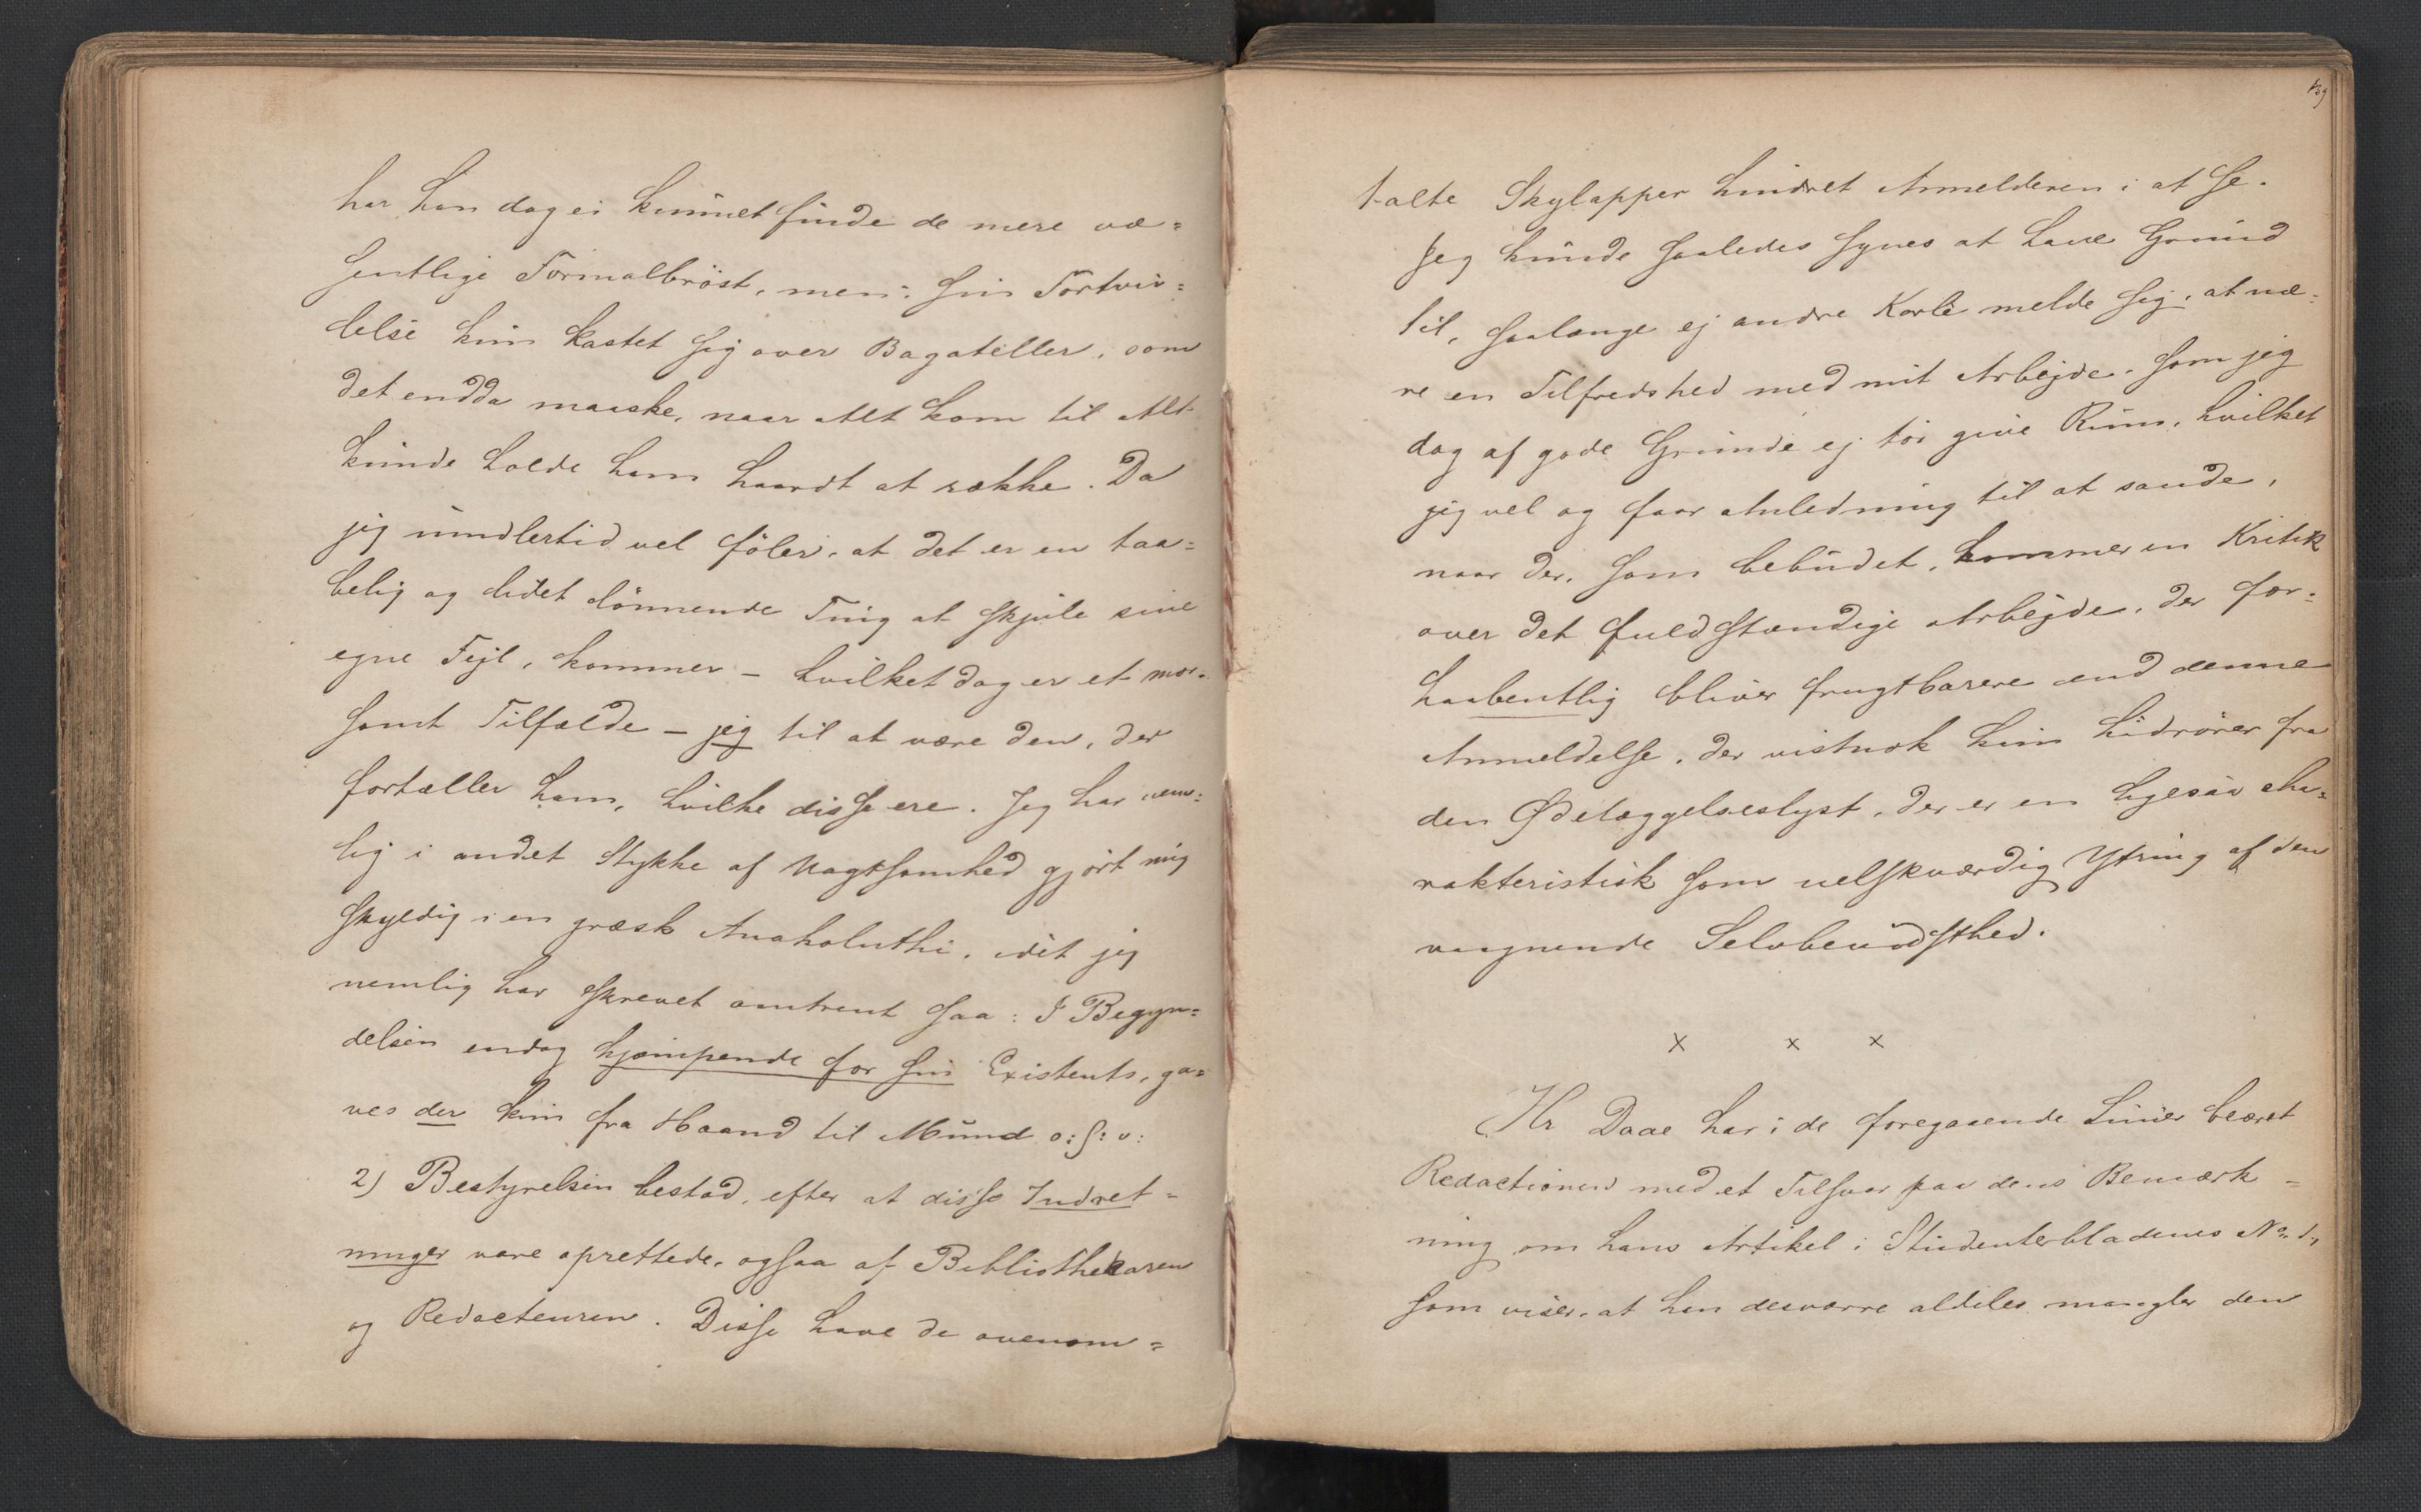 har han dog ei kunnet finde de mere væ=
sentlige Formalbröst, men i sin Fortviv=
lelse kun kastet sig over Bagateller, som
det endda maaske, naar Alt kom til Alt
kunde holde ham haardt at række. Da
jeg imidlertid vel föler, at det er en taa=
belig og lidet lönnende Ting at skjule sine
egne Fejl, kommer – hvilket dog er et mor=
somt Tilfælde – jeg til at være den, der
fortæller ham, hvilke disse ere. Jeg har nem=
lig i andet Stykke af Uagtsomhed gjört mig
skyldig i en græsk Anakoluthi, idet jeg
nemlig har skrevet omtrent saa: I Begyn=
delsen endog kjæmpende for sin Existents, ga=
ves der kun fra Haand til Mund o: s: v:
2) Bestyrelsen bestod, efter at disse Indret=
ninger vare oprettede, ogsaa af Bibliothekaren
og Redacteuren. Disse have de ovenom=
139
talte Skylapper hindret Anmelderen i at se.
Jeg kunde saaledes synes at have Grund
til, saalænge ej andre Karle melde sig, at næ=
re en Tilfredshed med mit Arbejde, som jeg
dog af gode Grunde ej tör give Rum, hvilket
jeg vel og faar Anledning til at sande,
naar der, som bebudet, kommer en Kritik
over det fuldstændige Arbejde, der for=
haabentlig bliver frugtbarere end denne
Anmeldelse, der vistnok kun hidrörer fra
den Ödelæggelseslyst, der er en ligesaa cha=
rakteristisk som uelskværdig Ytring af den
vaagnende Selvbevidsthed.
x x x
Hr Daae har i de foregaaende Linier beæret
Redactionen med et Tilsvar paa dens Bemærk=
ning om hans Artikel i Studenterbladenes No. 1,
som viser, at han desværre aldeles mangler den